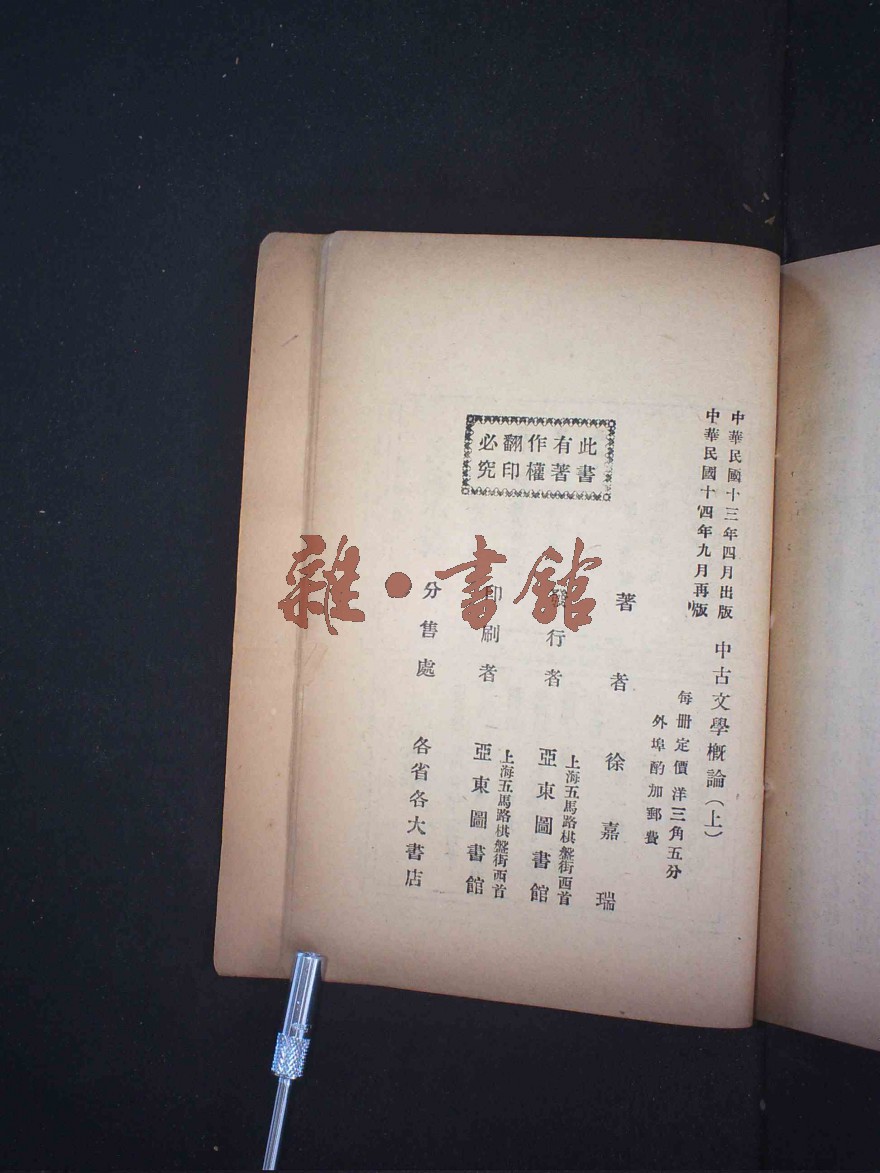 中華民國十三年四月出版
中華民國十四年九月再版
中古文學概論（上）
每冊定價洋三角五分
外埠酌加郵費
此書有著作權翻印必究
著者 徐嘉瑞
發行者 上海五馬路棋盤街西首 亞東圖書館
印刷者 上海五馬路棋盤街西首 亞東圖書館
分售處 各省各大書店
雜·書館